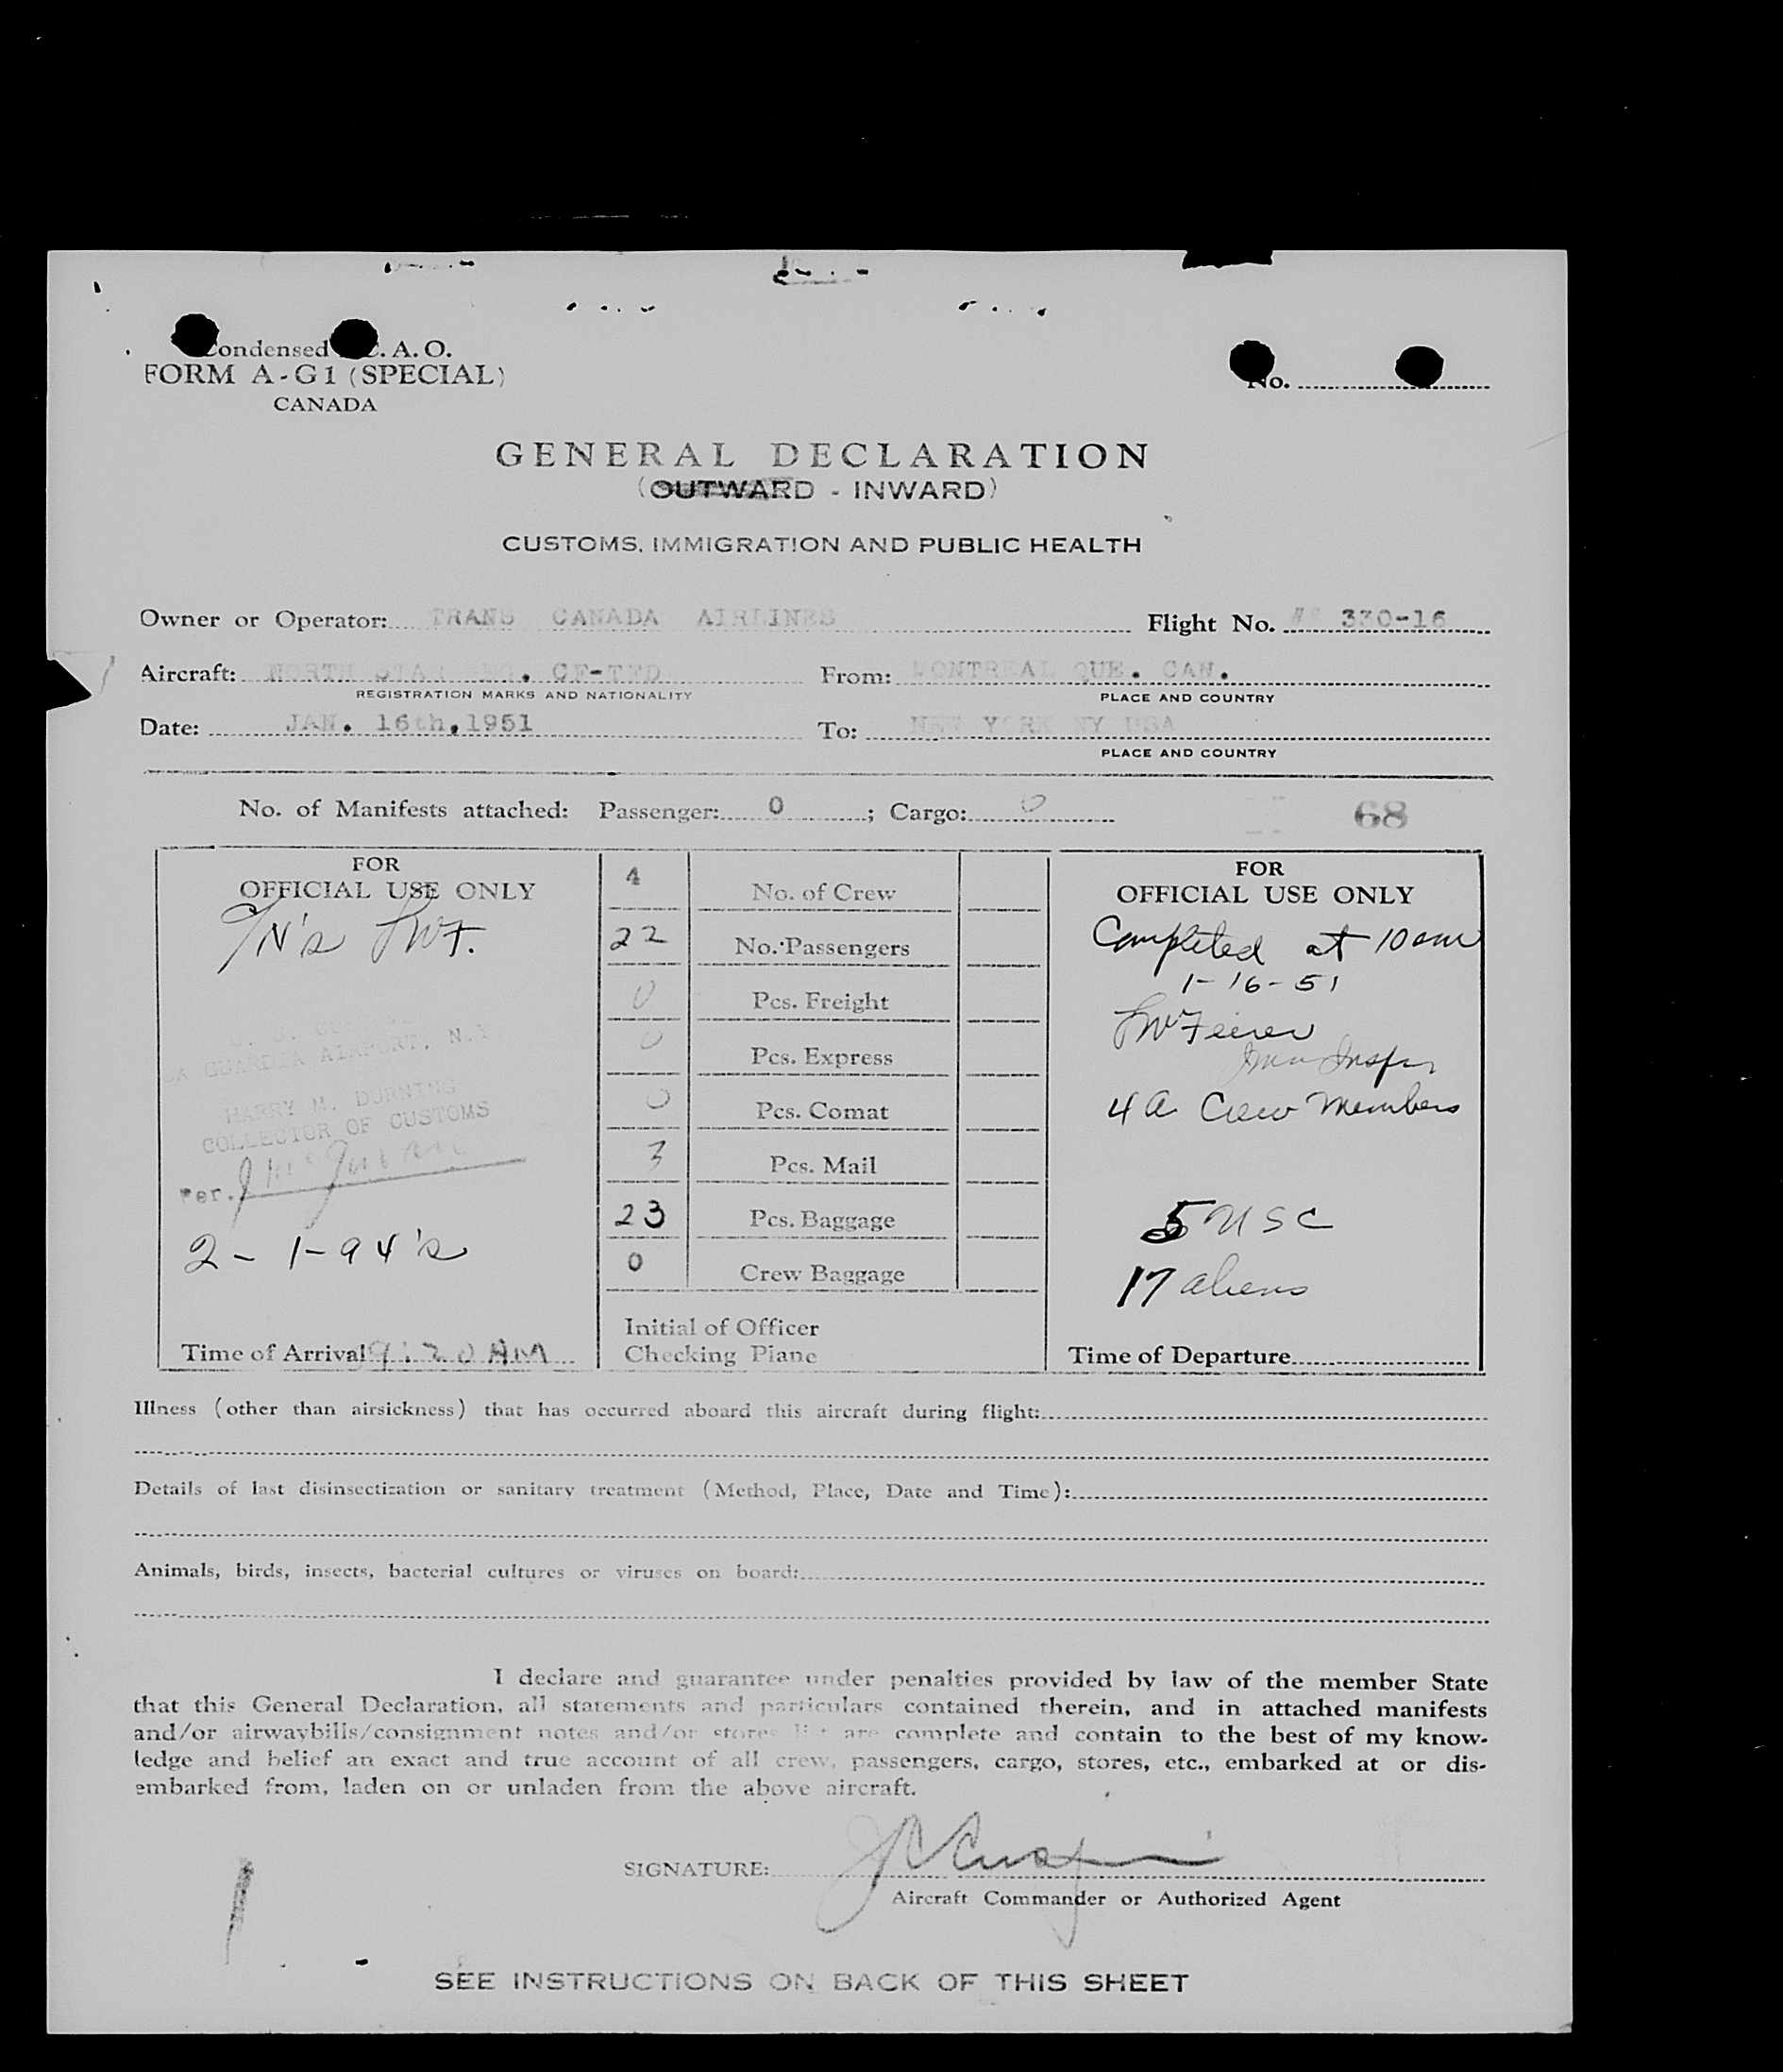 Condensed I.C.A.O.
FORM A-G1 (SPECIAL)
CANADA
No.
GENERAL DECLARATION
(OUTWARD - INWARD)
CUSTOMS, IMMIGRATION AND PUBLIC HEALTH
Owner or Operator: TRANS CANADA AIRLINES Flight No. 330-16
Aircraft: NORTH STAR REG. CF-TFD From: MONTREAL QUE. CAN.
REGISTRATION MARKS AND NATIONALITY PLACE AND COUNTRY
Date: JAN. 16th,1951 To: NEW YORK NY USA
PLACE AND COUNTRY
No. of Manifests attached: Passenger: 0 ; Cargo: 0 68
FOR
OFFICIAL USE ONLY
LA GUARDIA AIRPORT, N.Y.
HARRY M. DURNING
COLLECTOR OF CUSTOMS
Per.
2 - 1-94's
Time of Arrival 9:20 AM
4 No. of Crew
22 No. Passengers
0 Pcs. Freight
0 Pcs. Express
0 Pcs. Comat
3 Pcs. Mail
23 Pcs. Baggage
0 Crew Baggage
Initial of Officer
Checking Plane
FOR
OFFICIAL USE ONLY
Completed at 10 am
1-16-51
Imm Inspr
4 a Crew Members
5 USC
17 aliens
Time of Departure
Illness (other than airsickness) that has occurred aboard this aircraft during flight:
Details of last disinsectization or sanitary treatment (Method, Place, Date and Time):
Animals, birds, insects, bacterial cultures or viruses on board:
I declare and guarantee under penalties provided by law of the member State
that this General Declaration, all statements and particulars contained therein, and in attached manifests
and/or airwaybills/consignment notes and/or stores list are complete and contain to the best of my know-
ledge and belief an exact and true account of all crew, passengers, cargo, stores, etc., embarked at or dis-
embarked from, laden on or unladen from the above aircraft.
SIGNATURE:
Aircraft Commander or Authorized Agent
SEE INSTRUCTIONS ON BACK OF THIS SHEET